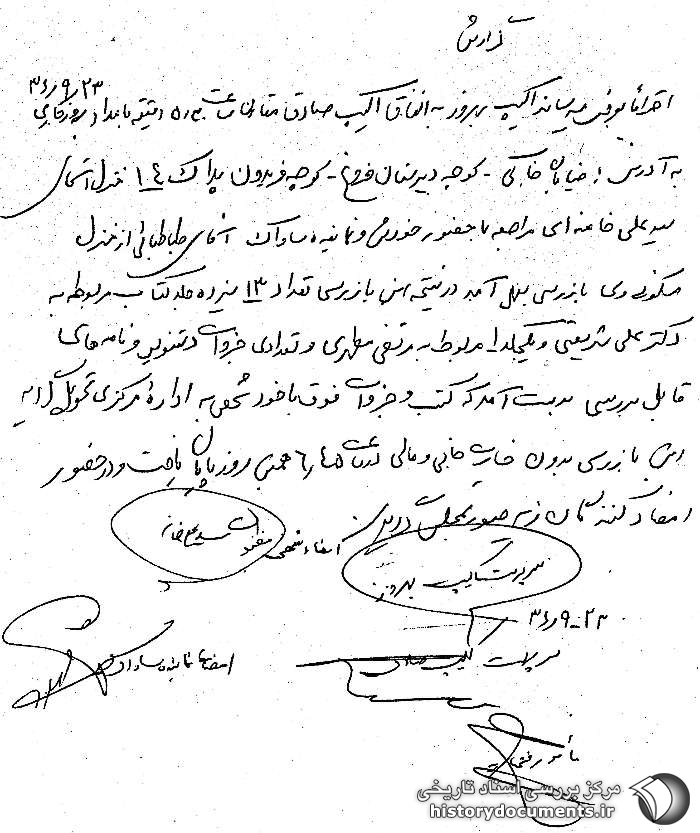 گزارش
احتراماً بعرض میرساند اکیپ بهروز به اتفاق اکیپ صادق مقارن ساعت ۵/۳۰ دقیقه بامداد روز جاری
۳۶/۹/۲۳
به آدرس: خیابان خاکی - کوچه دبیرستان فروغ - کوچه فریدون پلاک ۱۴ منزل آقای
سید علی خامنه ای مراجعه با حضور خودش و نماینده ساواک آقای طباطبائی از منزل
مسکونی وی بازرسی بعمل آمد در نتیجه این بازرسی تعداد ۱۳ سیزده جلد کتاب مربوطه به
دکتر علی شریعتی و یکجلد مربوط به مرتضی مطهری و تعدادی جزوات دستنویس و نامه های
قابل بررسی بدست آمد که کتب و جزوات فوق با خود شخص به اداره مرکزی تحویل گردید
این بازرسی بدون خسارت جانی و مالی در ساعت ۶/۴۵ همین روز پایان یافت و در حضور
امضاء کنندگان زیر صورتمجلس گردید
امضاء شخص سید علی خامنه
سرپرست اکیپ بهروز
۳۶/۹-۲۳
سرپرست اکیپ صادق
امضاء نماینده ساواک
مأمور
مرکز بررسی اسناد تاریخی
historydocuments.ir